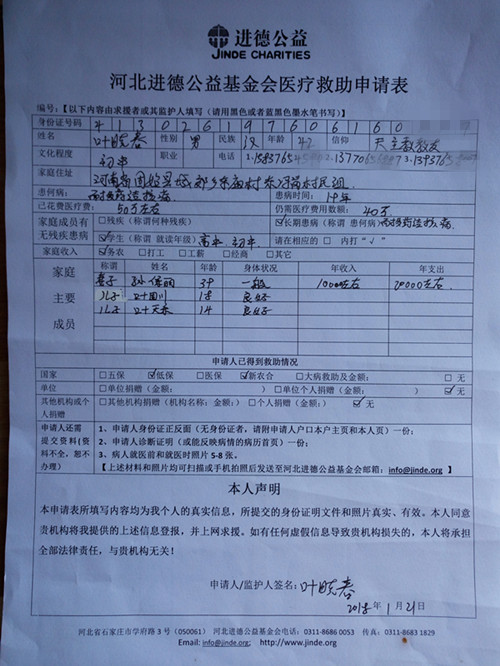 进德公益
JINDE CHARITIES
河北进德公益基金会医疗救助申请表
编号:【以下内容由求援者或其监护人填写(请用黑色或者蓝黑色墨水笔书写)】
身份证号码
姓名 叶晓春 性别 男 民族 汉 年龄 42 信仰 天主教教友
文化程度 初中 职业 电话
家庭住址 河南省固始县
患何病: 患病时间: 19年
已花费医疗费: 50万左右 仍需医疗费用数额: 40万
家庭成员有无残疾患病 □残疾(称谓 何种残疾) ☑长期患病(称谓 患何病)
☑学生(称谓 就读年级) 高中 初中 请在相应的 □ 内打"√"
家庭收入 ☑务农 □打工 □工薪 □经商 □其它
家庭主要成员 称谓 姓名 年龄 身体状况 年收入 年支出
妻子 39 一般 10000左右 20000左右
儿子 叶 18 良好
儿子 叶天 14 良好
申请人已得到救助情况
国家 □五保 ☑低保 □医保 ☑新农合 □大病救助及金额: □ 无
单位 □单位捐赠(金额: ) □单位个人捐赠(金额: ) ☑无
其他机构或个人捐赠 □其他机构捐赠(机构名称: 金额:) □个人捐赠(金额: ) ☑ 无
申请人还需提交资料(资料不全,恕不办理)
1、申请人身份证正反面(无身份证者,请附申请人户口本户主页和本人页)一份;
2、申请人诊断证明(或能反映病情的病历首页)一份;
3、病人就医前和就医时照片 5-8 张.
【上述材料和照片均可扫描或手机拍照后发送至河北进德公益基金会邮箱:info@jinde.org】
本人声明
本申请表所填写内容均为我个人的真实信息,所提交的身份证明文件和照片真实、有效。本人同意
贵机构将我提供的上述信息登报,并上网求援。如有任何虚假信息导致贵机构损失的,本人将承担
全部法律责任,与贵机构无关!
申请人/监护人签名: 叶晓春
2018年1月21日
河北省石家庄市学府路 3 号(050061) 河北进德公益基金会电话:0311-8686 0053 传真:0311-8683 1829
Email: info@jinde.org; http://www.jinde.org